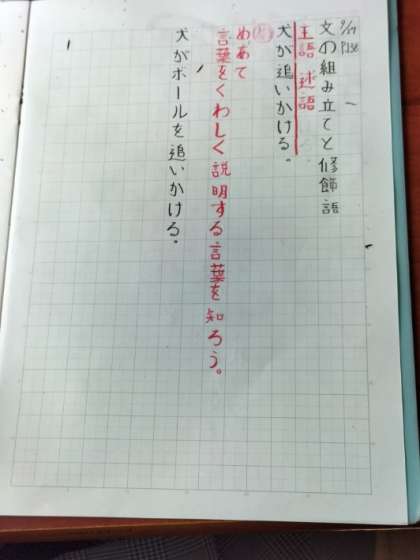 9/27
P138
文の組み立てと修飾語
主語 述語
犬が追いかける。
めあて
言葉をくわしく説明する言葉を知ろう。
犬がボールを追いかける。